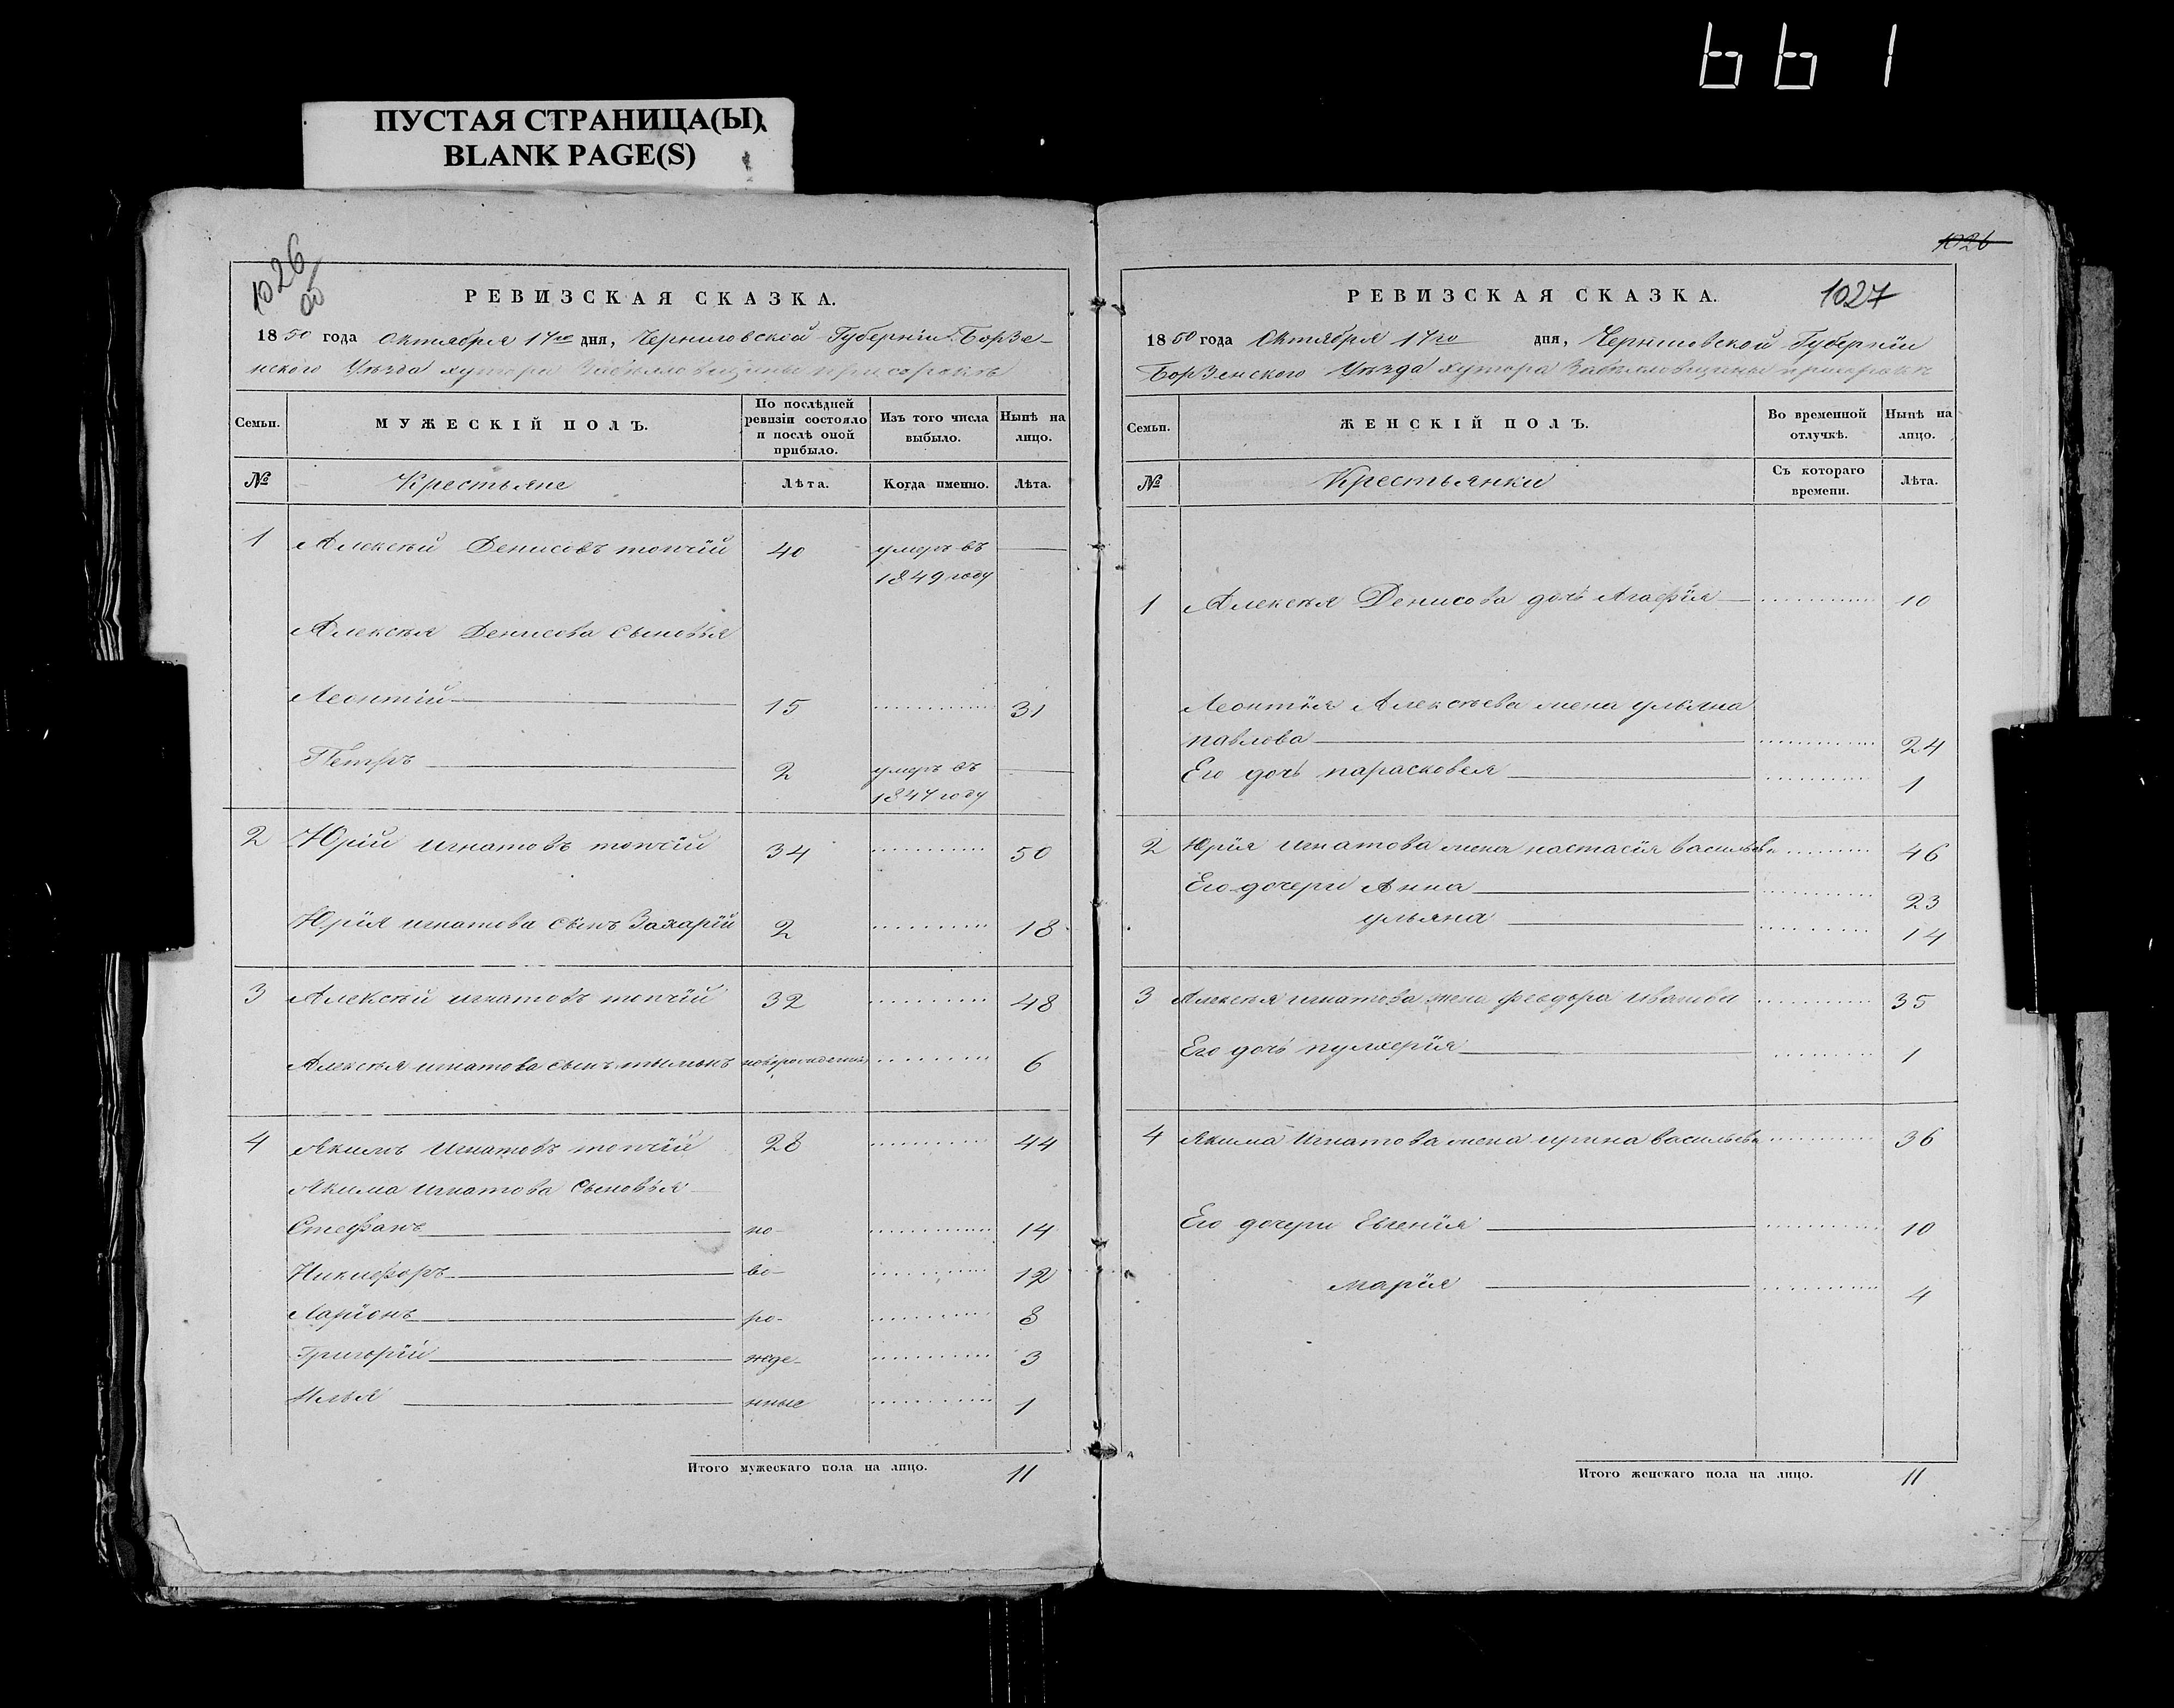 661
ПУСТАЯ СТРАНИЦА(Ы)
BLANK PAGE(S)
1026
об
РЕВИЗСКАЯ СКАЗКА.
1850 года Октября 17го дня, Черниговской Губерніи Борзе-
нского Уѣзда хутора
Семьи.
МУЖЕСКІЙ ПОЛЪ.
По послѣдней ревизіи состояло и послѣ оной прибыло.
Изъ того числа выбыло.
Нынѣ на лицо.
№ Крестьяне Лѣта. Когда именно. Лѣта.
1 Алексѣй Денисовъ топчій 40 умеръ въ
1849 году
Алексѣя Денисова сыновья
Леонтій 15 31
Петръ 2 умеръ въ
1847 году
2 Юрій игнатовъ топчій 34 50
Юрія игнатова сынъ Захарій 2 18
3 Алексѣй игнатовъ топчій 32 48
Алексѣя игнатова сынъ новорожденный 6
4 Якимъ Игнатовъ топчій 28 44
Якима игнатова сыновья
Стефанъ но- 14
Никифоръ во- 12
Ларіонъ ро- 8
Григорій жде- 3
Илья нные 1
Итого мужескаго пола на лицо. 11
1026
1027
РЕВИЗСКАЯ СКАЗКА.
1850 года Октября 17го дня, Черниговской Губерніи
Борзенского Уѣзда хутора
Семьи.
ЖЕНСКІЙ ПОЛЪ.
Во временной отлучкѣ.
Нынѣ на лицо.
№ Крестьянки Съ котораго времени. Лѣта.
1 Алексѣя Денисова дочь Агафія 10
Леонтія Алексѣева жена ульяна
павлова 24
Его дочь парасковея 1
2 Юрія игнатова жена настасія васильева 46
Его дочери Анна 23
ульяна 14
3 Алексѣя игнатова жена феодора 35
Его дочь пулхерія 1
4 Якима Игнатова жена ирина васильева 36
Его дочери Евгенія 10
марія 4
Итого женскаго пола на лицо. 11